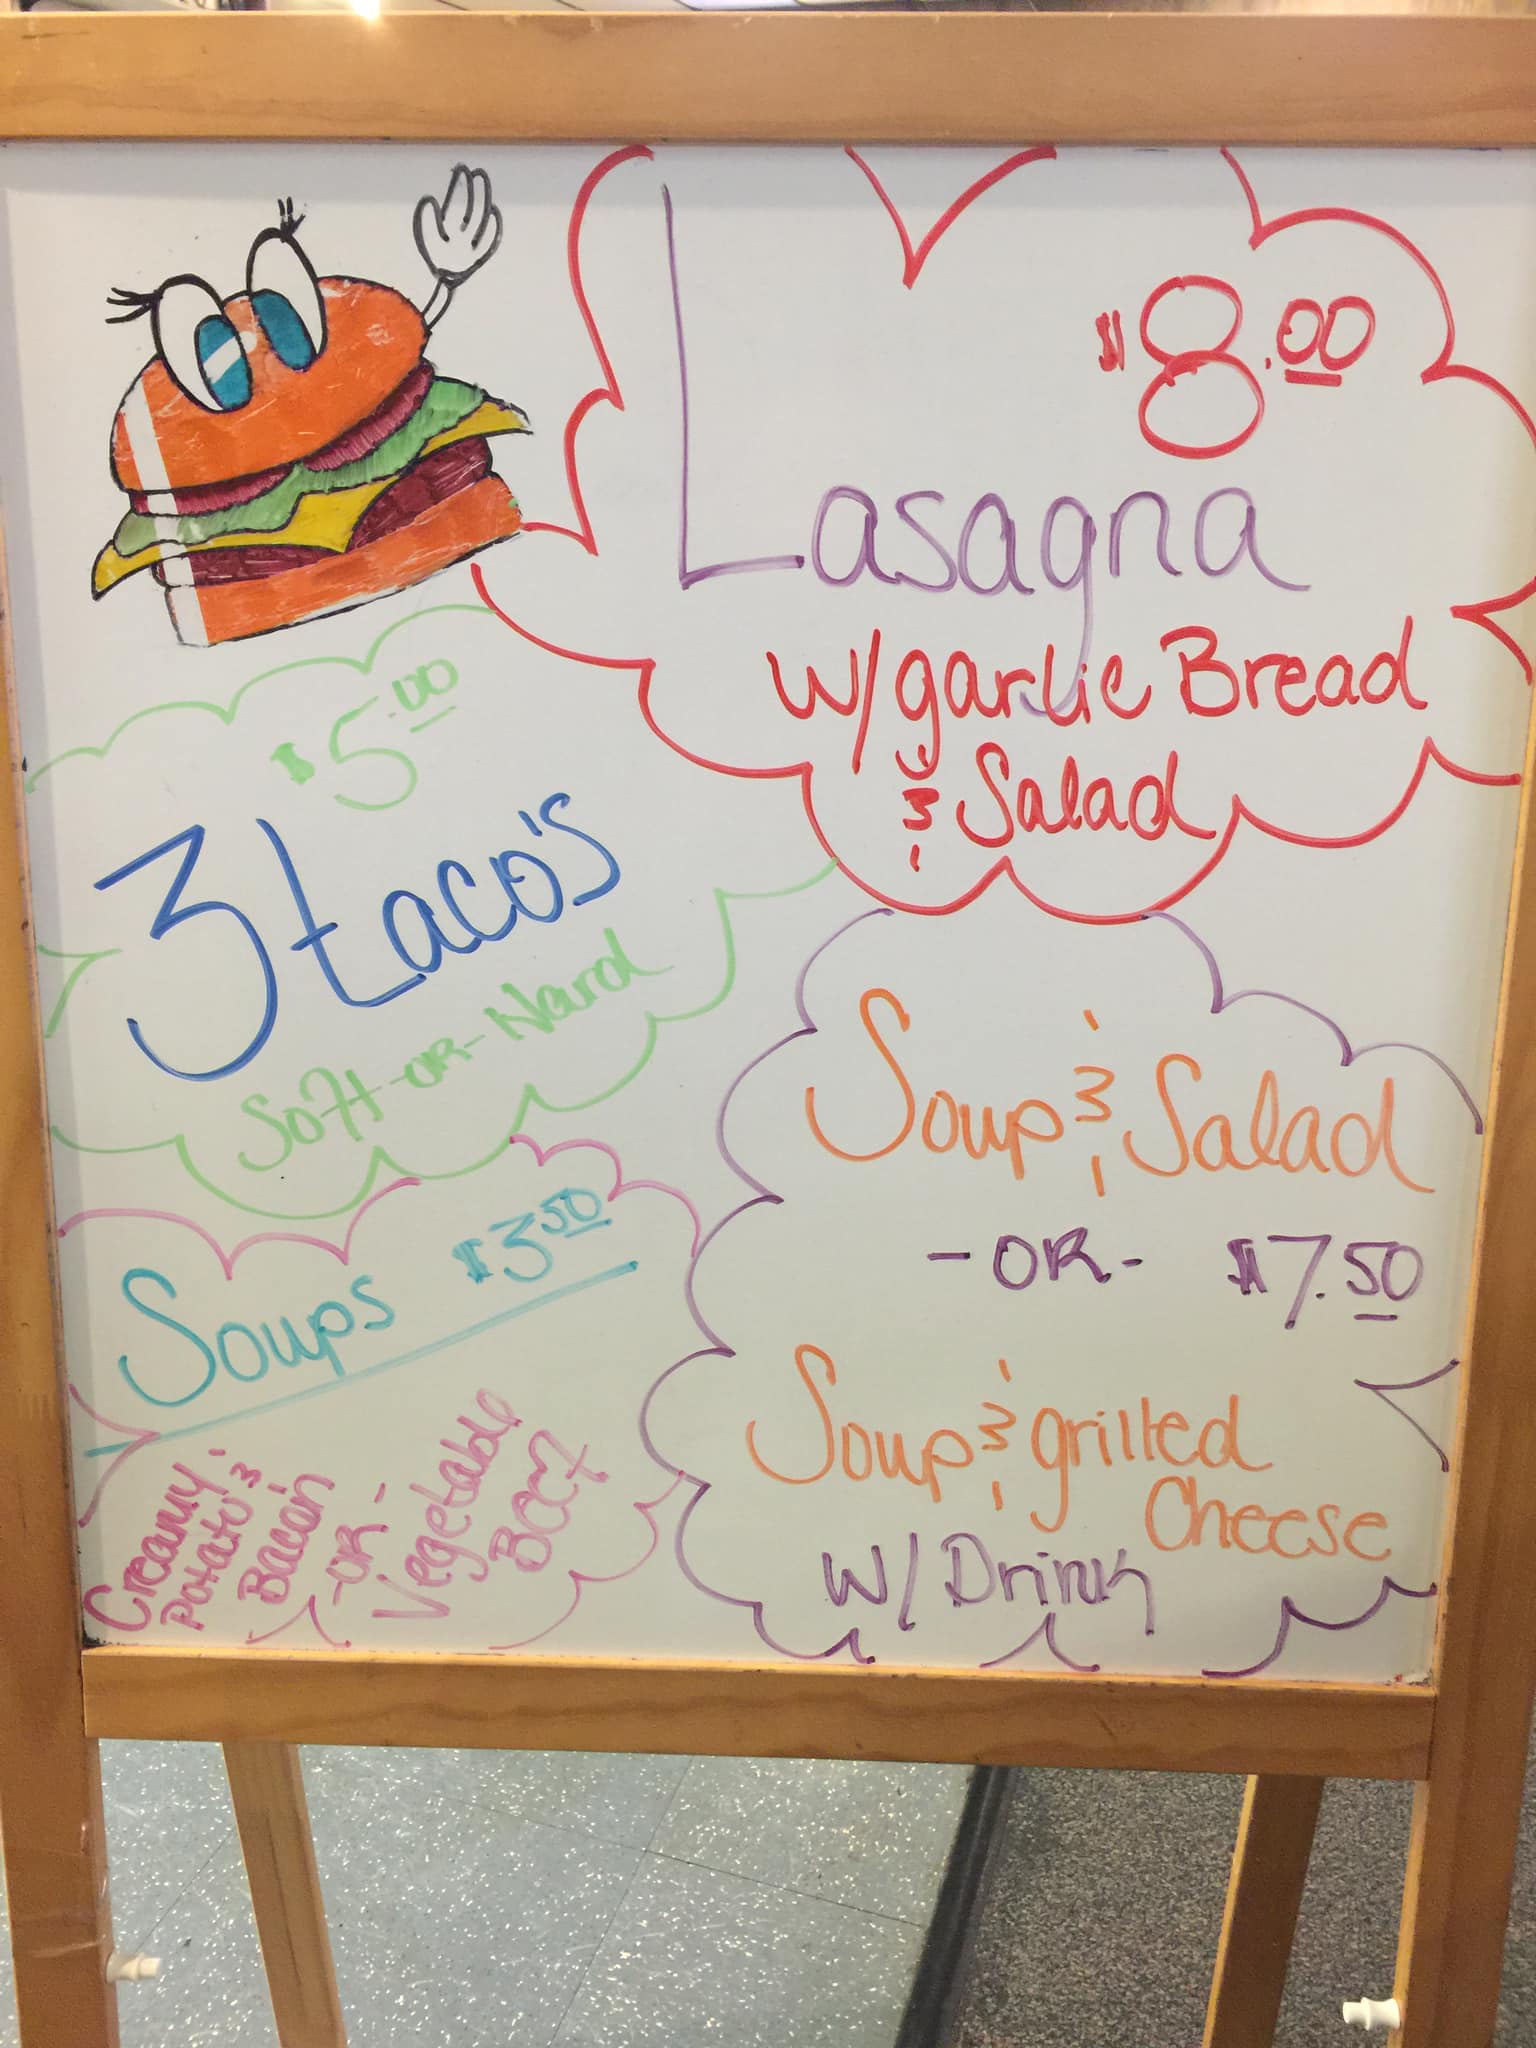 $8.00
Lasagna
w/garlic Bread
& Salad
$5.00
3 tacos's
Soft -OR- Hard
Soups $3.50
Creamy
Potato &
Bacon
-OR-
Vegetable
Beef
Soup & Salad
-OR- $7.50
Soup & grilled
Cheese
w/ Drink